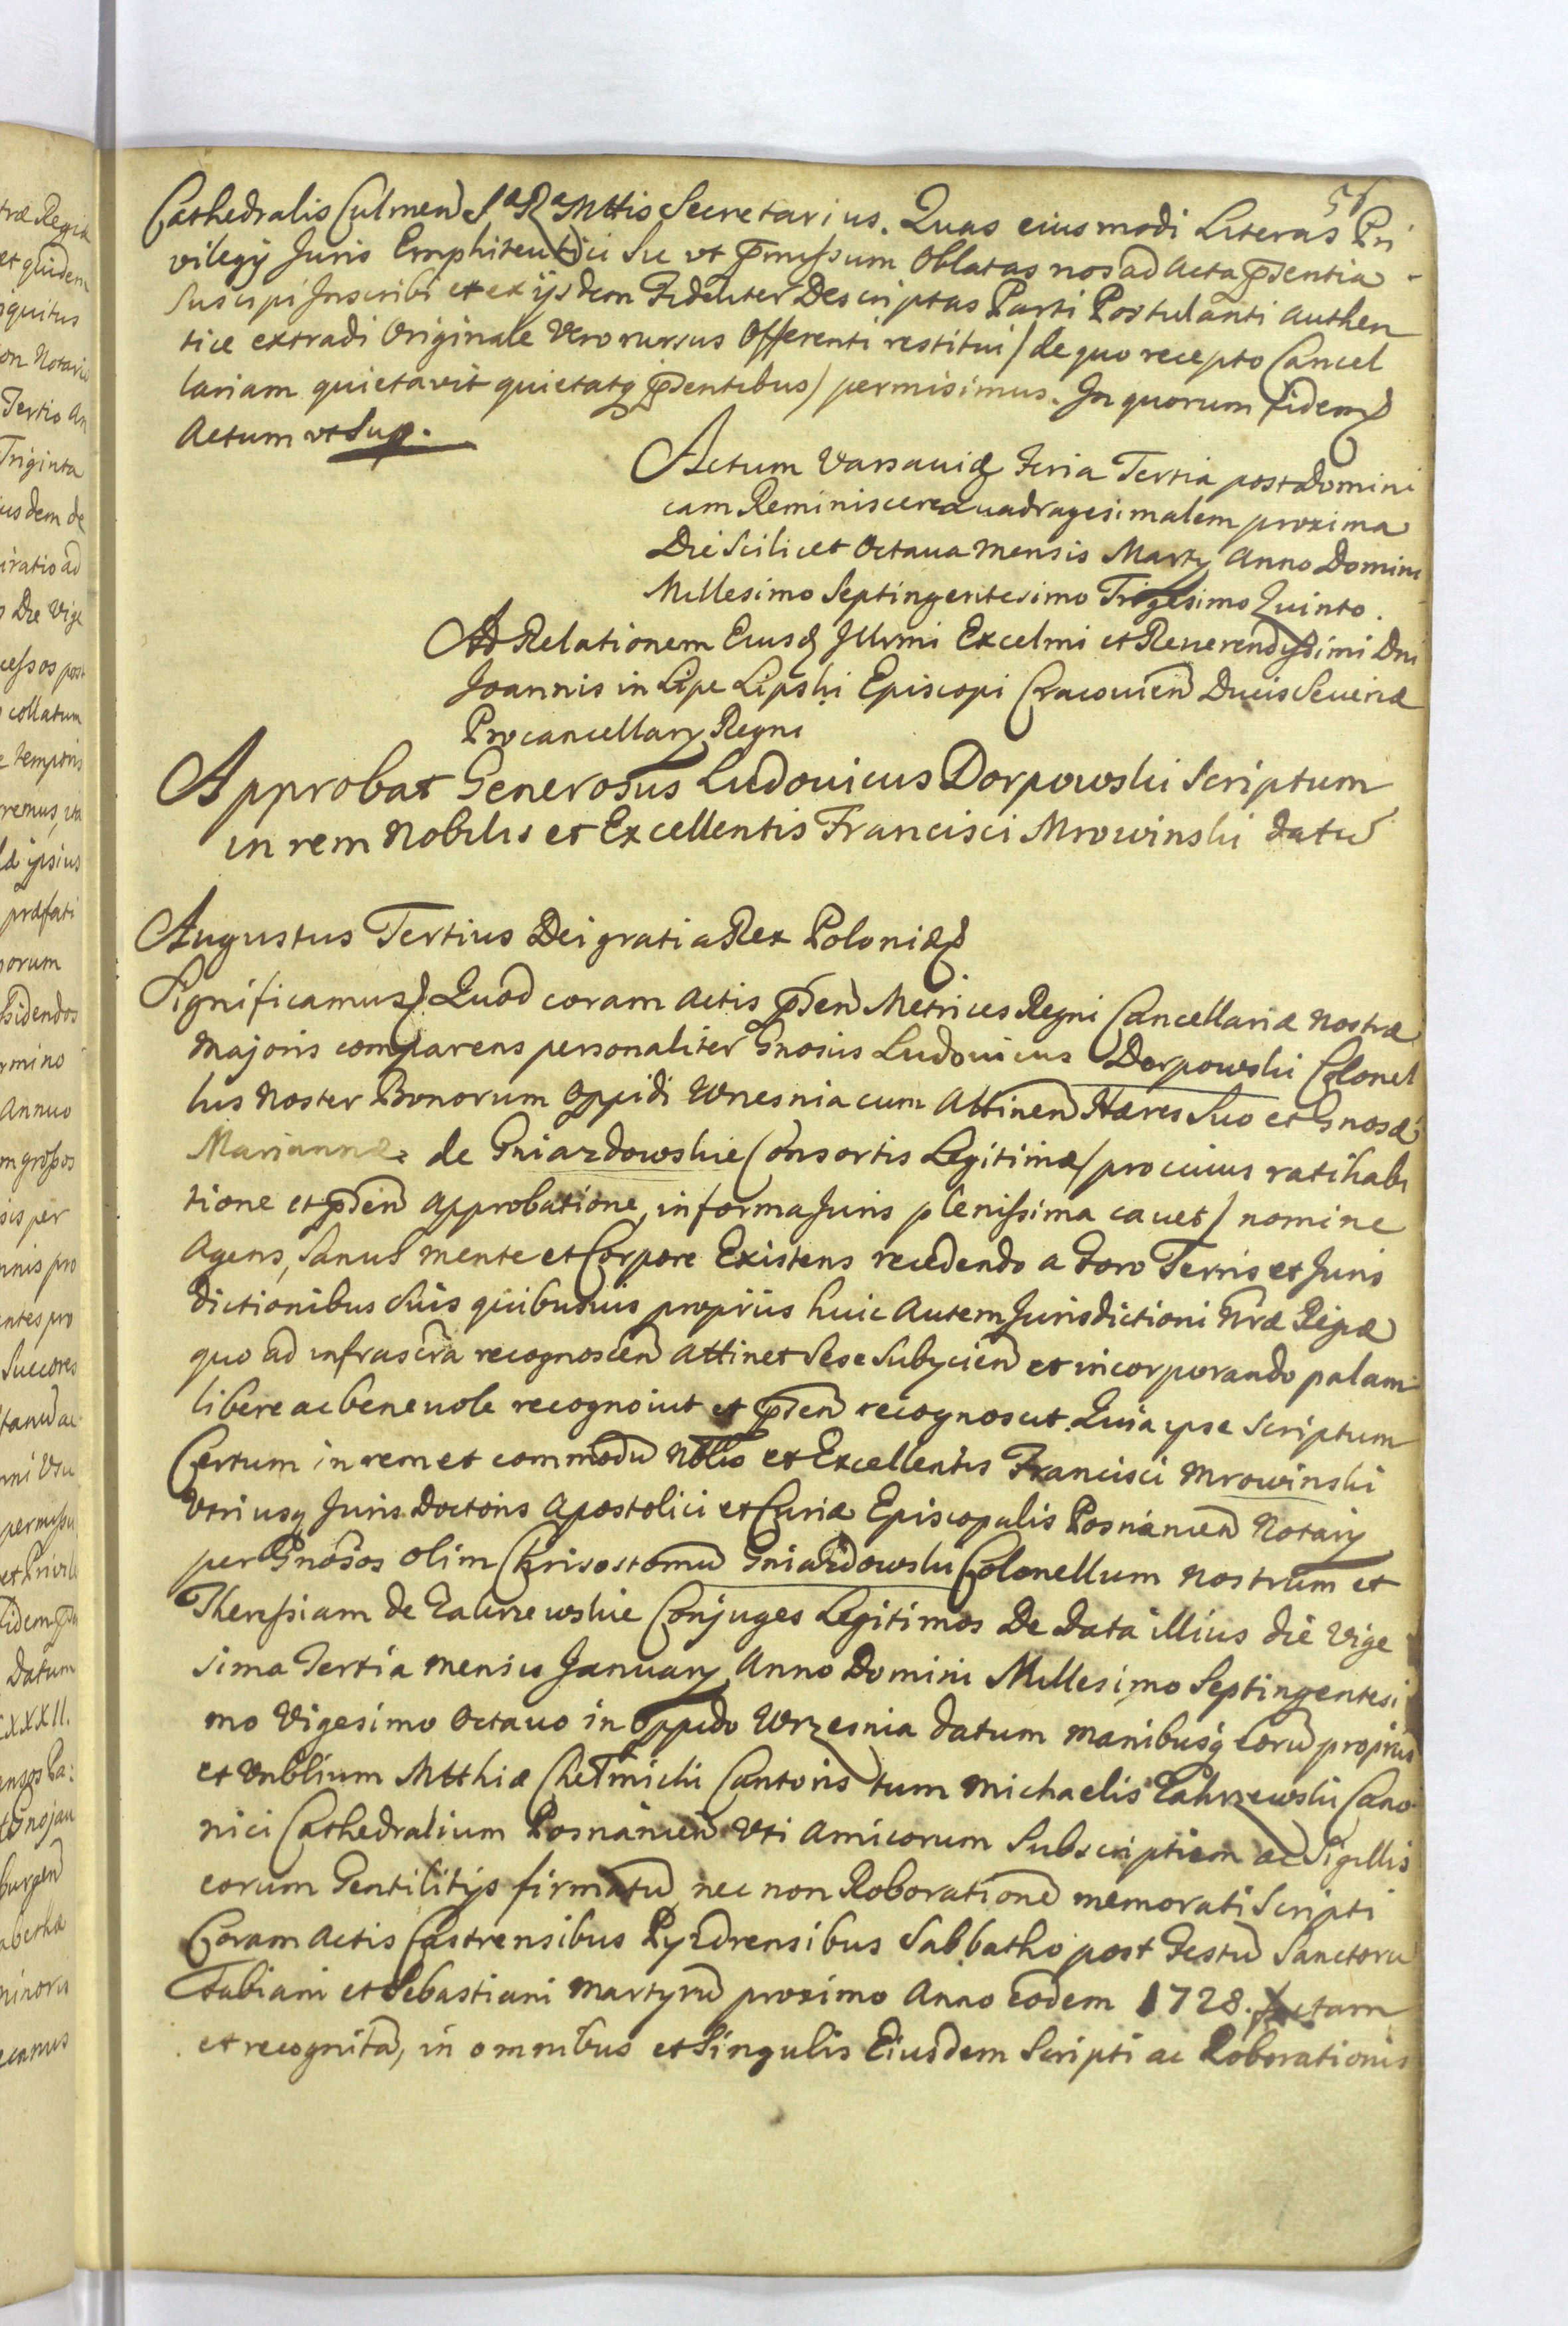 56
Cathedralis Culmen Sa Ra Mttis Secretarius. Quas eiusmodi Literas Pri
vilegÿ Juris Emphiteutici Sic vt pmissum Oblatas nos ad Acta pſentia
Suscipi Inscribi et ex ijsdem Fideliter Descriptas Parti Postulanti Authen
tice extradi Originale vero rursus Offerenti restitui / de quo recepto Cancel
lariam quietavit quietatq pſentibus / permisimus. In quorum fidem
Actum vt Sup.
Actum Varsaviæ Feria Tertia post Domini
cam Reminiscere Quadragesimalem proxima
Die Scilicet Octava Mensis Martÿ Anno Domini
Millesimo Septingentesimo Trigesimo Quinto.
Ad Relationem Eiusd Jllrmi Excelmi et Reverendissimi Dni
Joannis in Lipe Lipski Episcopi Cracovien Ducis Severiæ
Procancellarÿ Regni
Approbat Generosus Ludovicus Dorpowski Scriptum
in rem Nobilis et Excellentis Francisci Mrowinski datū
Augustus Tertius Dei gratia Rex Poloniæ
Significamus Quod coram Actis pſen Metrices Regni Cancellariæ Nostræ
Majoris comparens personaliter Gnosus Ludovicus Dorpowski Colonel
lus Noster Bonorum Oppidi Wnesnia cum Attinen Hæres Suo et Gnosæ
Mariannæ de Gniazdowskie Consortis Legitimæ / pro cuius ratihabi
tione et pſen Approbatione, in forma Juris plenissima cavet / nomine
Agens, Sanus mente et Corpore Existens recedendo a Foro Terris et Juris
dictionibus Suis quibusvis propriis huic Autem Jurisdictioni Nræ Regiæ
quo ad infrascra recognoscen attinet Sese Subÿcien et incorporando palam
libere ac benevole recognovit et pſen recognoscit. Quia ipse Scriptum
Certum in rem et commodū Noblis et Excellentis Francisci Mrowinski
Vtriusq Juris Doctoris Apostolici et Curiæ Episcopalis Posnanien Notarÿ
per Gnosos olim Chrisostomū Gniazdowski Colonellum Nostrum et
Theressiam de Zakrzewskie Conjuges Legitimos De Data illius die Vige
sima Tertia Mensis Januarÿ Anno Domini Millesimo Septingentesi
mo Vigesimo Octavo in Oppido Wrzesnia datum Manibusq eorū propriis
et Vnblium Mtthiæ Chełmicki Cantoris tum Michaelis Zakrzewski Cano
nici Cathedralium Posnanien Vti Amicorum Subscription ac Sigillis
eorum Gentilitÿs firmatū, nec non Roborationē memorati Scripti
Coram Actis Castrensibus Pyzdrensibus Sabbatho post Festū Sanctorū
Fabiani et Sebastiani Martyrū proximo Anno eodem 1728. factam
et recognitā, in omnibus et Singulis Eiusdem Scripti ac Roborationis